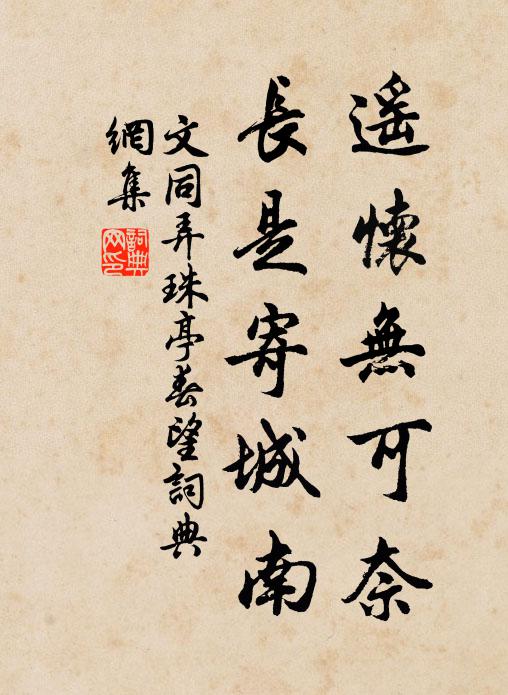 遥懷無可奈
長是寄城南
文同弄珠亭春望詞典
網集
詞典
网印